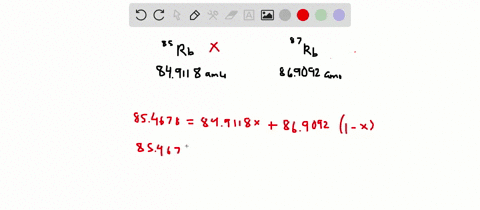 ⁸⁵Rb X ⁸⁷Rb
84.9118 amu 86.9092 amu
85.4678 = 84.9118x + 86.9092 (1-x)
85.467